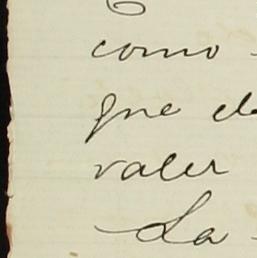 como
que el
valer
La